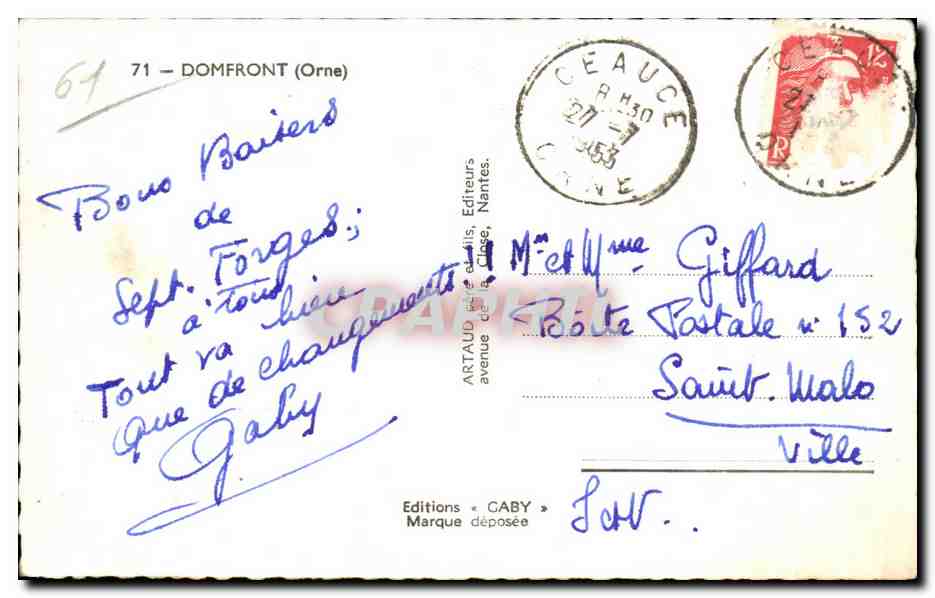 61
71 — DOMFRONT (Orne)
Bons Baisers
de
Sept. Forges;
à tous
Tout va bien
Que de changements!!
Gaby
ARTAUD Père et Fils, Editeurs
avenue de la Close, Nantes.
Editions « GABY »
Marque déposée
CEAUCE
8 H30
27 -7
1953
ORNE
CEAUCE
27
ORNE
12
Mr et Mme Giffard
Boîte Postale n° 152
Saint-Malo
Ville
I et V..
CPAPHIL